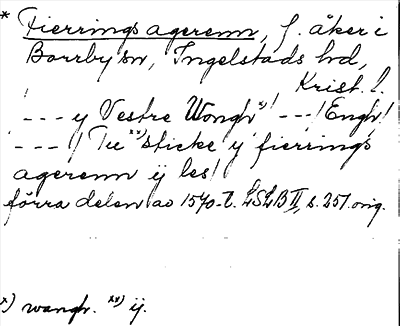 * Fierrings agerenn, f. åker i
Borrby sn, Ingelstads hd,
Krist. l.
! --- y Vestre Wongh x) ! --- ! Engh !
--- ! Tu xx) sticke y fierrings
agerenn ij les !
förra delen av 1570-t. LSLB II, s. 251. orig.
x) wangh. xx) ij.